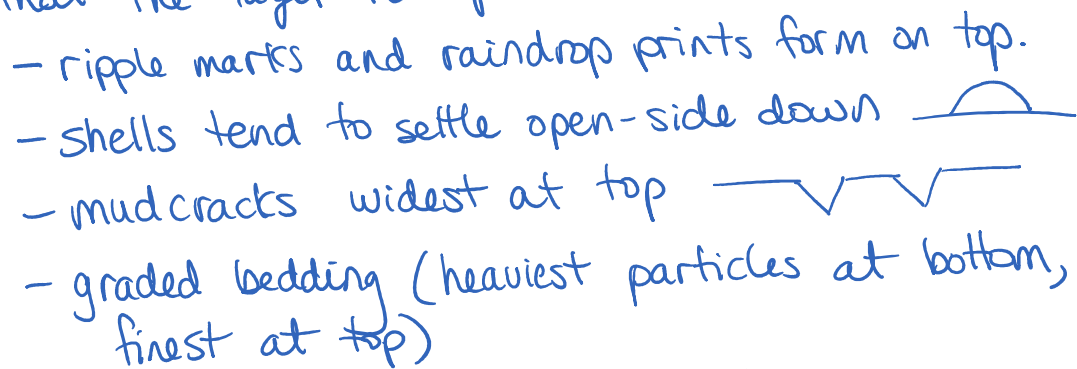 the layer is
- ripple marks and raindrop prints form on top.
- shells tend to settle open-side down
- mudcracks widest at top
- graded bedding (heaviest particles at bottom,
finest at top)